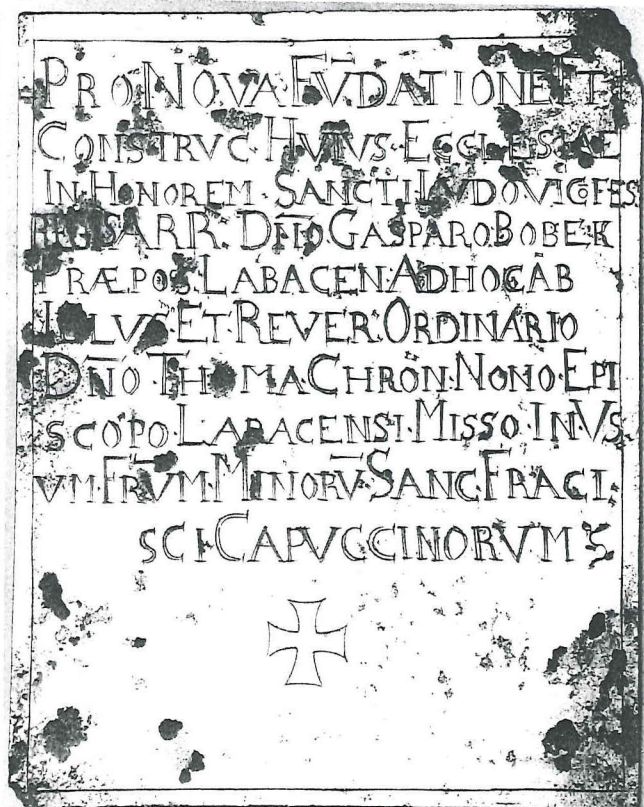 PRO NOVA FŪDATIONE ET
CONSTRVC·HVIVS·ECCLESIAE
IN·HONOREM·SANCTI·LVDOVICO FES
SARR·DÑO·GASPARO·BOBEK
PRÆPOS·LABACEN·ADHOC AB
ILLVS·ET·REVER·ORDINARIO
DÑO·THOMA·CHRÖN·NONO·EPI
SCOPO·LABACENSI·MISSO·IN·VS
VM·FRV̄M·MINORV̄·SANC·FRACI·
SCI·CAPVCCINORVM